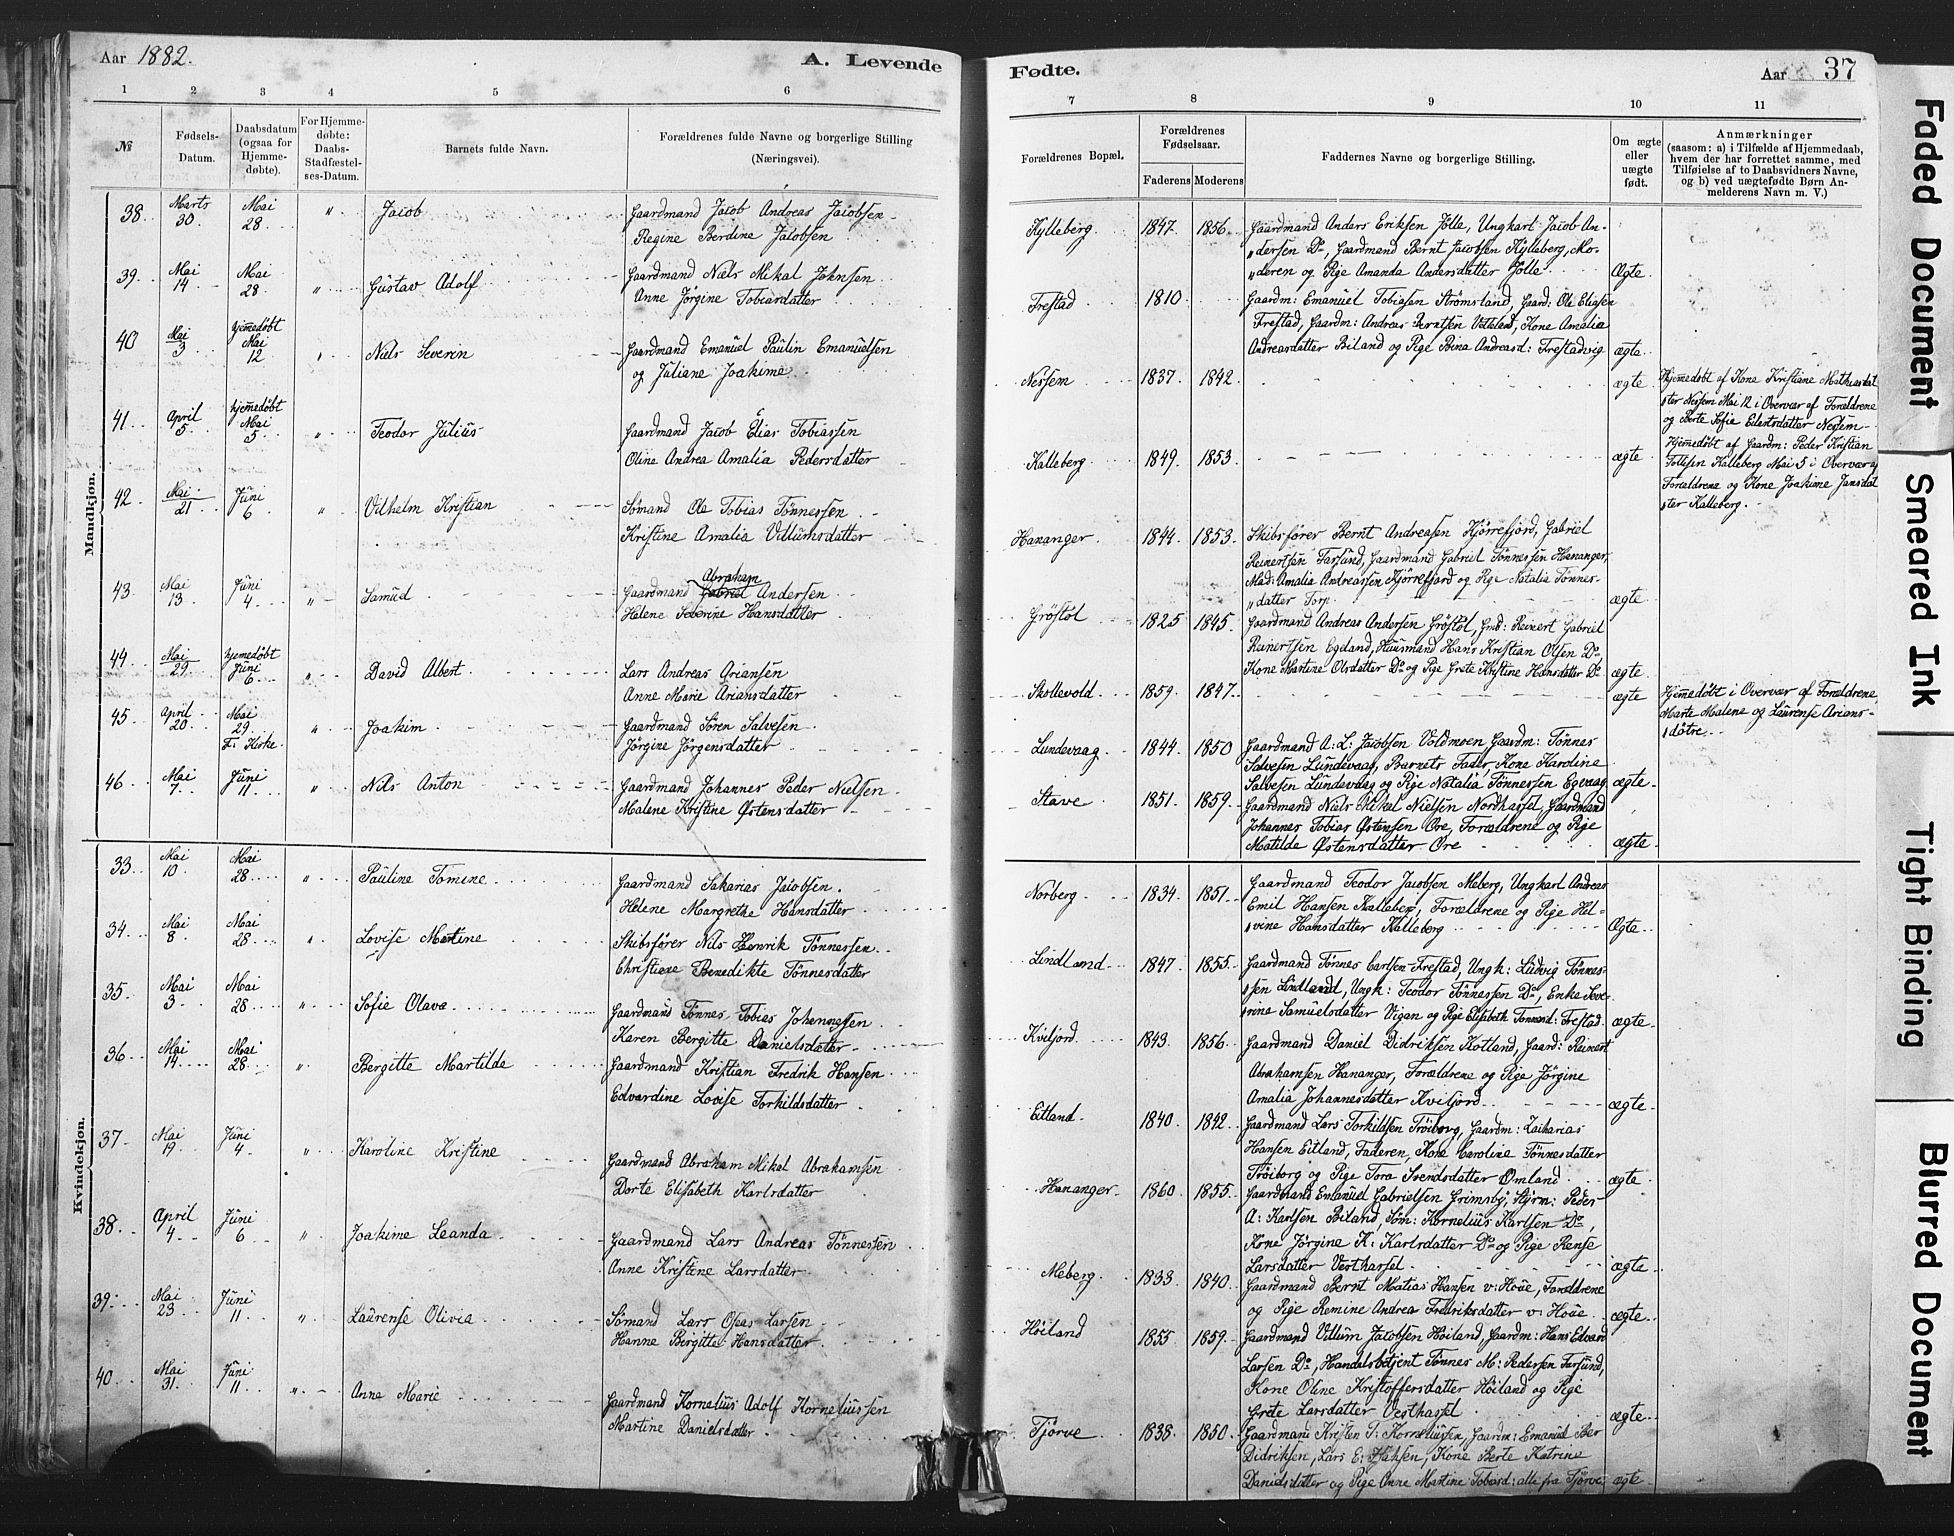 Aar 1882.
A. Levende
1 2 3 4 5 6
№
Fødsels-
Datum.
Daabsdatum
(ogsaa for
Hjemme-
døbte).
For Hjemme-
døbte:
Daabs-
Stadfæstel-
ses-Datum.
Barnets fulde Navn.
Forældrenes fulde Navne og borgerlige Stilling
(Næringsvei).
Mandkjøn.
38. Marts 30. Mai 28. " Jacob
Gaardmand Jacob Andreas Jacobsen
Regine Berdine Jacobsen
39. Mai 14 Mai 28. " Gustav Adolf
Gaardmand Niels Mikal Johnsen
Anne Jørgine Tobiasdatter
40 Mai 3 hjemedøbt Mai 12 " Niels Severin
Gaardmand Emanuel Paulin Emanuelsen
og Juliane Joakime
41. April 5. hjemedøbt Mai 5. " Teodor Julius
Gaardmand Jacob Elias Tobiassen
Oline Andrea Amalia Pedersdatter
42. Mai 21 Juni 6 " Vilhelm Kristian
Sømand Ole Tobias Tønnessen
Kristine Amalia Villumsdatter
43. Mai 13. Juni 4 " Samuel
Abraham
Gaardmand Gabriel Andersen
Helene Severine Hansdatter
44. Mai 29 hjemedøbt Juni 6 " David Albert
Lars Andreas Ariansen
Anne Marie Ariansdatter
45. April 20. Mai 29. F. Kirke. " Joakim
Gaardmand Søren Salvesen
Jörgine Jörgensdatter
46 Mai 7. Juni 11 " Nils Anton
Gaardmand Johannes Peder Nielsen
Malene Kristine Østensdatter
Kvindekjøn.
33. Mai 10. Mai 28 " Pauline Tomine
Gaardmand Sakarias Jacobsen.
Helene Margrethe Hansdatter
34. Mai 8. Mai 28 " Lovise Martine
Skibsfører Nils Henrik Tönnessen
Christiane Benedikte Tönnesdatter
35. Mai 3 Mai 28 " Sofie Olava
Gaardmand Tönnes Tobias Johannessen
Karen Bergitte Danielsdatter
36 Mai 14 Mai 28 " Bergitte Martilde
Gaardmand Kristian Fredrik Hansen
Edvardine Lovise Torkildsdatter
37 Mai 19 Juni 4 " Karoline Kristine
Gaardmand Abraham Mikal Abrahamsen
Dorte Elisabeth Karlsdatter
38. April 4 Juni 6 " Joakime Leanda
Gaardmand Lars Andreas Tönnessen
Anne Kristine Larsdatter
39. Mai 23 Juni 11 " Laurense Olivia
Sømand Lars Oseas Larsen
Hanne Birgitte Hansdatter
40 Mai 31. Juni 11 " Anne Marie
Gaardmand Kornelius Adolf Korneliussen
Martine Danielsdatter
Fødte.
Aar 37
7 8 9 10 11
Forældrenes Bopæl.
Forældrenes
Fødselsaar.
Faderens Moderens
Faddernes Navne og borgerlige Stilling.
Om ægte
eller
uægte
født.
Anmærkninger
(saasom: a) i Tilfælde af Hjemmedaab,
hvem der har forrettet samme, med
Tilføielse af to Daabsvidners Navne,
og b) ved uægtefødte Børn An-
melderens Navn m. V.)
Kylleberg. 1847. 1856 Gaardmand Anders Eriksen Jölle, Ungkarl Jacob An-
dersen Do, Gaardmand Bernt Jacobsen Kylleberg, Mo-
deren og Pige Amanda Andersdatter Jölle Ægte.
Frestad 1810 Gaardm: Emanuel Tobiasen Strömsland, Gaard: Ole Eliasen
Frestad, Gaardm: Andreas Berntsen Vetteland, Kone Amalia
Andreasdatter Biland og Pige Bina Andreasd: Frestadvig ægte.
Nessem 1837. 1842. ægte Hjemedøbt af Kone Kristiane Mathiasdat
ter Nessem Mai 12 i Overvær af Forældrene
og Berte Sofie Edentsdatter Nessem
Kalleberg. 1849. 1853. ægte Hjemedøbt af Gaardm: Peder Kristian
Tollisen Kalleberg Mai 5 i Overvær af
Forældrene og Kone Joakime Jansdat
ter Kalleberg.
Hananger. 1844. 1853. Skibsfører Bernt Andreasen Kjørrefjord, Gabriel
Reinertsen Farsund, Gaardmand Gabriel Tönnessen Hananger,
Mad: Amalia Andreassen Kjörrefjord og Pige Natalia Tönnes-
datter Torp. ægte
Gröstöl 1825 1845. Gaardmand Andreas Andersen Gröstöl, Gmd: Reinert Gabriel
Reinertsen Egeland, Huusmand Hans Kristian Olsen Do
Kone Martine Olsdatter Do og Pige Grete Kristine Hansdatter Do ægte
Skollevold. 1859. 1847. ægte Hjemedøbt i Overvær af Forældrene,
Marte Malene og Laurense Arians-
döttre.
Lundevaag. 1844. 1850 Gaardmand A: L: Jacobsen Voldmoen Gaardm: Tönnes
Salvesen Lundevaag, Barnets Fader Kone Karoline
Salvesen Lundevaag og Pige Natalia Tönnessen Egevaag ægte.
Stave 1851. 1859. Gaardmand Niels Mikel Nielsen Nordhassel, Gaardmand
Johannes Tobias Østensen Ore, Forældrene og Pige
Matilde Østensdatter Ore ægte.
Norberg. 1834. 1851. Gaardmand Teodor Jacobsen Meberg, Ungkarl Andreas
Emil Hansen Kalleberg, Forældrene og Pige Hel-
vine Hansdatter Kalleberg Ægte.
Lindland 1847 1855. Gaardmand Tönnes Carlsen Frestad, Ungk: Ludvig Tönnes-
sen Lindland, Ungk: Teodor Tönnessen Do, Enke Seve-
rine Samuelsdatter Vigan og Pige Elisabeth Tönnesd: Frestad. ægte
Kviljord. 1843. 1856. Gaardmand Daniel Didriksen Kotland, Gaard: Reinert
Abrahamsen Hananger, Forældrene og Pige Jörgine
Amalia Johannesdatter Kviljord ægte
Eitland. 1840. 1842. Gaardmand Lars Torkildsen Tröiborg, Gaardm: Zakarias
Hansen Eitland, Faderen, Kone Caroline Tönnesdatter
Tröiborg og Pige Tora Svendsdatter Omland ægte
Hananger. 1860. 1855. Gaardmand Emanuel Gabrielsen Grimsby, Styrm: Peder
A: Karlsen Biland, Söm: Kornelius Karlsen Do,
Kone Jörgine K: Karlsdatter Do og Pige Rense
Larsdatter Vesthassel ægte
Meberg. 1833. 1840. Gaardmand Bernt Matias Hansen v: Houe, Forældrene
og Pige Remine Andrea Fredriksdatter v: Houe ægte
Höiland 1855 1859. Gaardmand Villum Jacobsen Höiland, Gaardm: Hans Edvard
Larsen Do, Handelsbetjent Tönnes M: Pedersen Farsund,
Kone Oline Kristoffersdatter Höiland og Pige
Grete Larsdatter Vesthassel ægte
Tjörve 1838. 1850. Gaardmand Kristen T: Korneliussen, Gaardm: Emanuel Ber
Didriksen, Lars E: Hansen, Kone Berte Katrine
Danielsdatter og Pige Anne Martine Tobiasd: alle fra Tjörve ægte
Faded Document
Smeared Ink
Tight Binding
Blurred Document